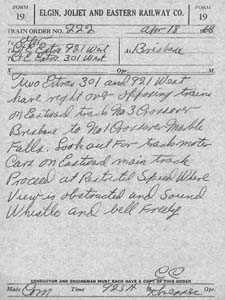 FORM 19 ELGIN, JOLIET AND EASTERN RAILWAY CO. FORM 19
TRAIN ORDER NO. 222 Apr 18
To
C&E Extra 921 West At Brisbane
C&E Extra 301 West
Two Extras 301 and 921 West
have right over opposing trains
on Eastward track No 3 Crossover
Brisbane to No 1 Crossover Marble
Falls. Look out for track motor
Cars on Eastward main track
Proceed at Restrctd Speed Where
View is obstructed and Sound
Whistle and bell Freely
CC
CONDUCTOR AND ENGINEMAN MUST EACH HAVE A COPY OF THIS ORDER
Made Com Time